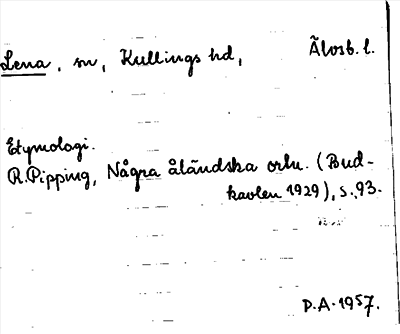 Lena, sn, Kullings hd, Älvsb. l.
Etymologi.
R. Pipping, Några åländska ortn. (Bud-
kavlen 1929), s. 93.
P.A. 1957.